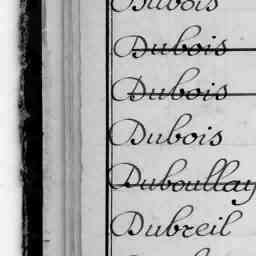 Dubois
Dubois
Dubois
Dubois
Duboullay
Dubreil